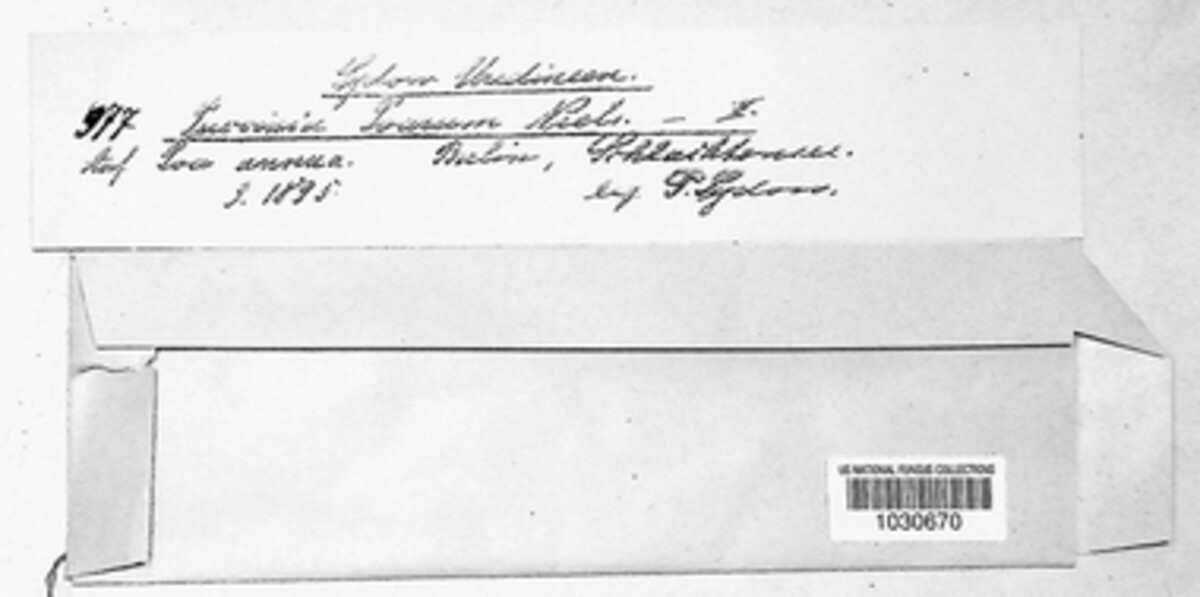 Sydow Uredineen.
977 Puccinia Poarum Niels. – I.
Auf Poa annua. Berlin, Schlachtensee.
3. 1895. leg. P. Sydow.
US NATIONAL FUNGUS COLLECTIONS
1030670